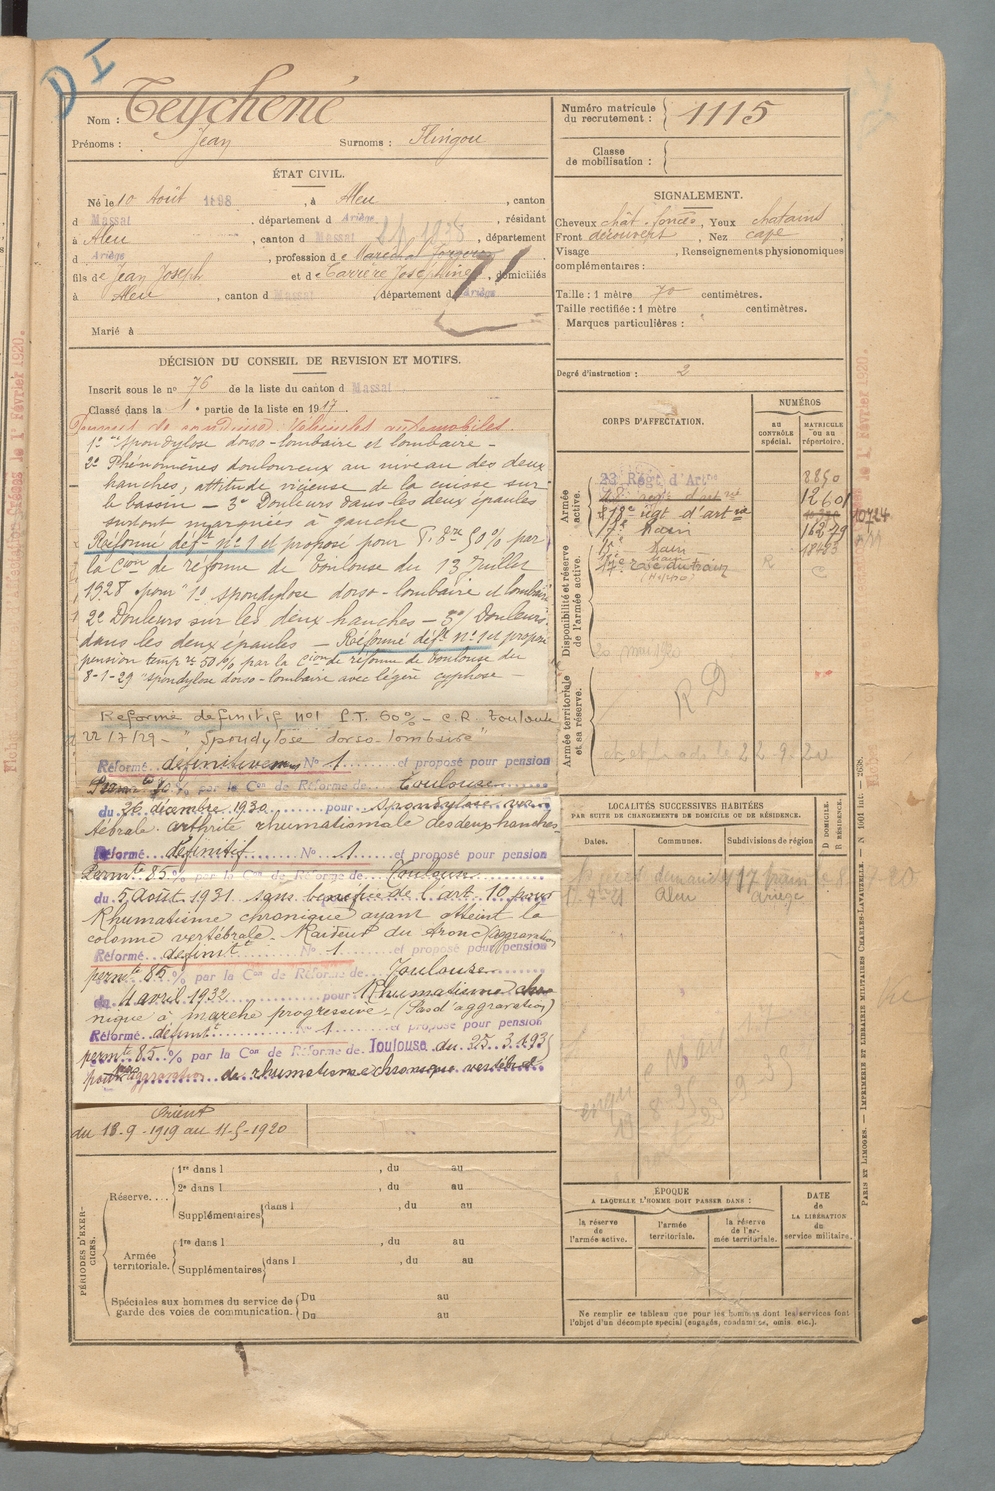 D I
Nom : Teychené
Prénoms : Jean Surnoms : Flingou
ÉTAT CIVIL.
Né le 10 Août 1898, à Aleu, canton
d Massat, département d Ariège, résidant
à Aleu, canton d Massat, département
d Ariège, profession de Maréchal forgeron
fils de Jean Joseph et de Carrère Josephine, domiciliés
à Aleu, canton d Massat, département d Ariège
Marié à
DÉCISION DU CONSEIL DE REVISION ET MOTIFS.
Inscrit sous le no 76 de la liste du canton d Massat
Classé dans la 1e partie de la liste en 1917.
Permis de conduire Véhicules automobiles.
1o spondylose dorso-lombaire et lombaire -
2o Phénomènes douloureux au niveau des deux
hanches, attitude vicieuse de la cuisse sur
le bassin - 3o Douleurs dans les deux épaules
surtout marquées à gauche
Réformé déft no 1 et proposé pour P. 50% par
la Con de réforme de Toulouse du 13 Juillet
1928 pour "1o spondylose dorso-lombaire et lombaire
2o Douleurs sur les deux hanches - 3o/ Douleurs
dans les deux épaules - Réformé déft no 1 et proposé
pension temp re 50% par la Cion de réforme de Toulouse du
8-1-29 "spondylose dorso-lombaire avec légère cyphose -
Réformé définitif no 1 P.T. 60% - C.R. Toulouse
22/7/29 - "Spondylose dorso-lombaire"
Réformé définitivement No 1 et proposé pour pension
par la Con de Réforme de Toulouse
du 26 décembre 1930 pour spondylose ver-
tébrale. arthrite rhumatismale des deux hanches
Réformé définitif No 1 et proposé pour pension
Permte 85% par la Con de Réforme de Toulouse
du 5 Août 1931 sans bénéfice de l'art 10 pour
Rhumatisme chronique ayant atteint la
colonne vertébrale. Raideur du tronc (aggravation
Réformé définitt No 1 et proposé pour pension
permte 85% par la Con de Réforme de Toulouse
du 4 avril 1932 pour Rhumatisme chro-
nique à marche progressive. (Pas d'aggravation)
Réformé définitt No 1 et proposé pour pension
permte 85% par la Con de Réforme de Toulouse du 25.3.1935
pour aggravation de rhumatisme chronique vertébral
Orient
du 18-9-1919 au 11-5-1920
PÉRIODES D'EXERCICES.
Réserve....
1re dans l , du au
2e dans l , du au
Supplémentaires dans l , du au
Armée territoriale.
1re dans l , du au
Supplémentaires dans l , du au
Spéciales aux hommes du service de Du au
garde des voies de communication. Du au
Numéro matricule
du recrutement : 1115
Classe
de mobilisation :
SIGNALEMENT.
Cheveux chât. foncés, Yeux chatains
Front découvert, Nez cape,
Visage , Renseignements physionomiques
complémentaires :
Taille : 1 mètre 70 centimètres.
Taille rectifiée : 1 mètre centimètres.
Marques particulières :
Degré d'instruction : 2
CORPS D'AFFECTATION.
NUMÉROS
au CONTRÔLE spécial.
MATRICULE ou au répertoire.
Armée active.
23 Régt d'Artie 8850
régt d'art ie 12401
régt d'art ie 10724
Train 16279
Train 18483
R C
Disponibilité et réserve de l'armée active.
Armée territoriale et sa réserve.
R D
LOCALITÉS SUCCESSIVES HABITÉES
PAR SUITE DE CHANGEMENTS DE DOMICILE OU DE RÉSIDENCE.
Dates. Communes. Subdivisions de région
D. DOMICILE. R. RÉSIDENCE.
17-9-21 Aleu Ariège
ÉPOQUE
A LAQUELLE L'HOMME DOIT PASSER DANS :
la réserve de l'armée active.
l'armée territoriale.
la réserve de l'armée territoriale.
DATE de LA LIBÉRATION du service militaire.
Ne remplir ce tableau que pour les hommes dont les services font
l'objet d'un décompte spécial (engagés, condamnés, omis, etc.).
PARIS ET LIMOGES. — IMPRIMERIE ET LIBRAIRIE MILITAIRES CHARLES-LAVAUZELLE. — N 1061 Int. — 2638.